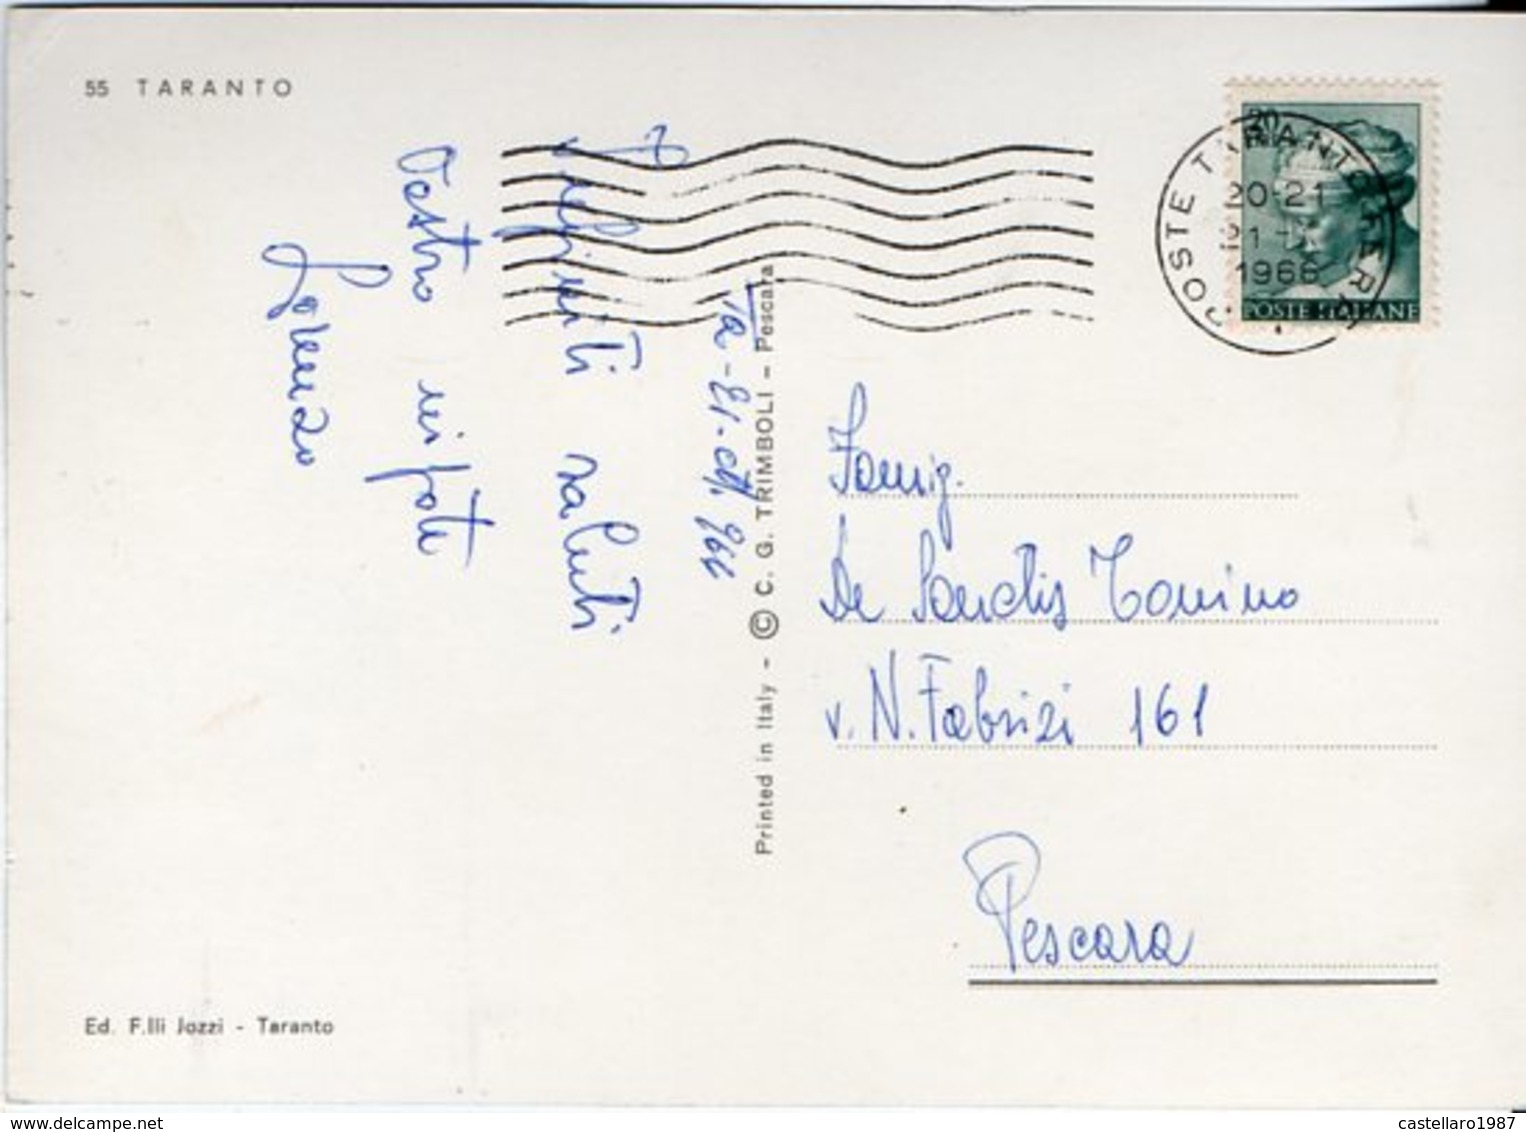 55 TARANTO
Ta - 21. 966
Affettuosi saluti
Vostro nipote
Lorenzo
Printed in Italy - © C. G. TRIMBOLI - Pescara
20
POSTE ITALIANE
POSTE TARANTO FERR
20-21
1966
Famig.
De Sanctis Tonino
v. N. Fabrizi 161
Pescara
Ed. F.lli Jozzi - Taranto
castellaro1987